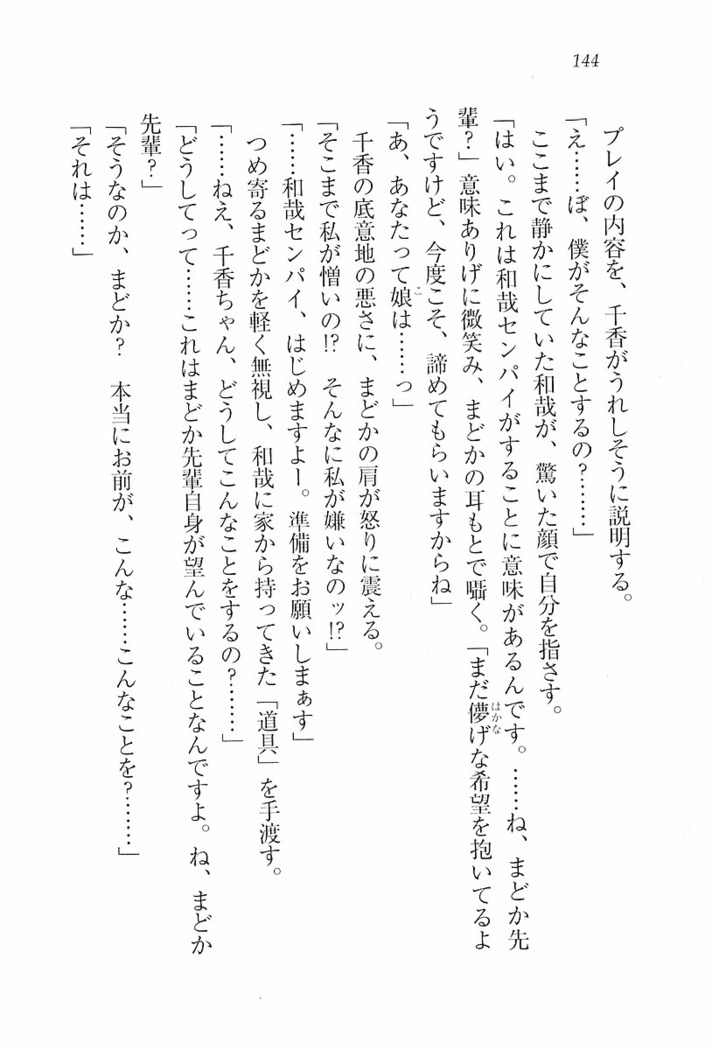 144
プレイの内容を、千香がうれしそうに説明する。
「え……ぼ、僕がそんなことするの？……」
ここまで静かにしていた和哉が、驚いた顔で自分を指さす。
「はい。これは和哉センパイがすることに意味があるんです。……ね、まどか先
輩？」意味ありげに微笑み、まどかの耳もとで囁く。「まだ儚げな希望を抱いてるよ
うですけど、今度こそ、諦めてもらいますからね」
「あ、あなたって娘は……っ」
千香の底意地の悪さに、まどかの肩が怒りに震える。
「そこまで私が憎いの!?　そんなに私が嫌いなのッ!?」
「……和哉センパイ、はじめますよー。準備をお願いしまぁす」
つめ寄るまどかを軽く無視し、和哉に家から持ってきた「道具」を手渡す。
「……ねえ、千香ちゃん、どうしてこんなことをするの？……」
「どうしてって……これはまどか先輩自身が望んでいることなんですよ。ね、まどか
先輩？」
「そうなのか、まどか？　本当にお前が、こんな……こんなことを？……」
「それは……」